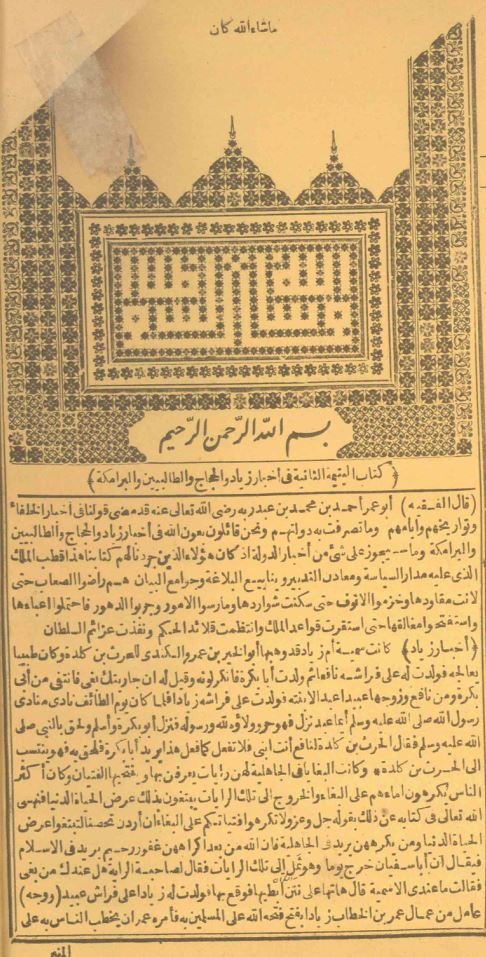 ماشاء الله كان
بسم الله الرحمن الرحيم
﴿كتاب اليتيمة الثانية في أخبار زياد والحجاج والطالبيين والبرامكة﴾
(قال الفقيه) أبو عمر أحمد بن محمد بن عبد ربه رضي الله تعالى عنه قد مضى قولنا في أخبار الخلفاء
وتواريخهم وأيامهم وما تصرفت به دولتهم ونحن قائلون بعون الله في أخبار زياد والحجاج والطالبيين
والبرامكة وما يجوز على شئ من أخبار الدولة اذ كان هؤلاء الذين جردنا لهم كتابنا هذا قطب الملك
الذي عليه مدار السياسة ومعادن التدبير وينابيع البلاغة وجوامع البيان هم راضوا الصعاب حتى
لانت مقاودها وخزموا الانوف حتى سكنت شواردها ومارسوا الامور وجربوا الدهور فاحتملوا اعباءها
واستفتحوا مغالقها حتى استقرت قواعد الملك وانتظمت قلائد الحكم ونفذت عزائم السلطان
﴿أخبار زياد﴾ كانت سمية أم زياد قد وهبها أبو الخير بن عمرو الكندي للحرث بن كلدة وكان طبيبا
يعالجه فولدت له على فراشه نافعا ثم ولدت أبا بكرة فانكر لونه وقيل له ان جاريتك بغي فانتفى من أبي
بكرة ومن نافع وزوجها عبيدا عبد الابنته فولدت على فراشه زيادا فلما كان يوم الطائف نادى منادى
رسول الله صلى الله عليه وسلم أيما عبد نزل فهو حر وولاؤه لله ورسوله فنزل أبو بكرة وأسلم ولحق بالنبي صلى
الله عليه وسلم فقال الحرث بن كلدة لنافع أنت ابني فلا تفعل كما فعل هذا يريد أبا بكرة فلحق به فهو ينتسب
الى الحرث بن كلدة * وكانت البغايا في الجاهلية لهن رايات يعرفن بها وينتحيها الفتيان وكان أكثر
الناس يكرهون اماءهم على البغاء والخروج الى تلك الرايات يبتغون بذلك عرض الحياة الدنيا فنهى
الله تعالى في كتابه عن ذلك بقوله جل وعز ولا تكرهوا فتياتكم على البغاء ان أردن تحصنا لتبتغوا عرض
الحياة الدنيا ومن يكرههن يريد في الجاهلية فان الله من بعد اكراههن غفور رحيم يريد في الاسلام
فيقال ان أبا سفيان خرج يوما وهو ثمل الى تلك الرايات فقال لصاحبة الراية هل عندك من بغي
فقالت ما عندي الا سمية قال هاتها على نتن ابطيها فوقع بها فولدت له زيادا على فراش عبيد (ووجه)
عامل من عمال عمر بن الخطاب زيادا بفتح فتحه الله على المسلمين به فأمره عمر ان يخطب الناس به على
المنبر